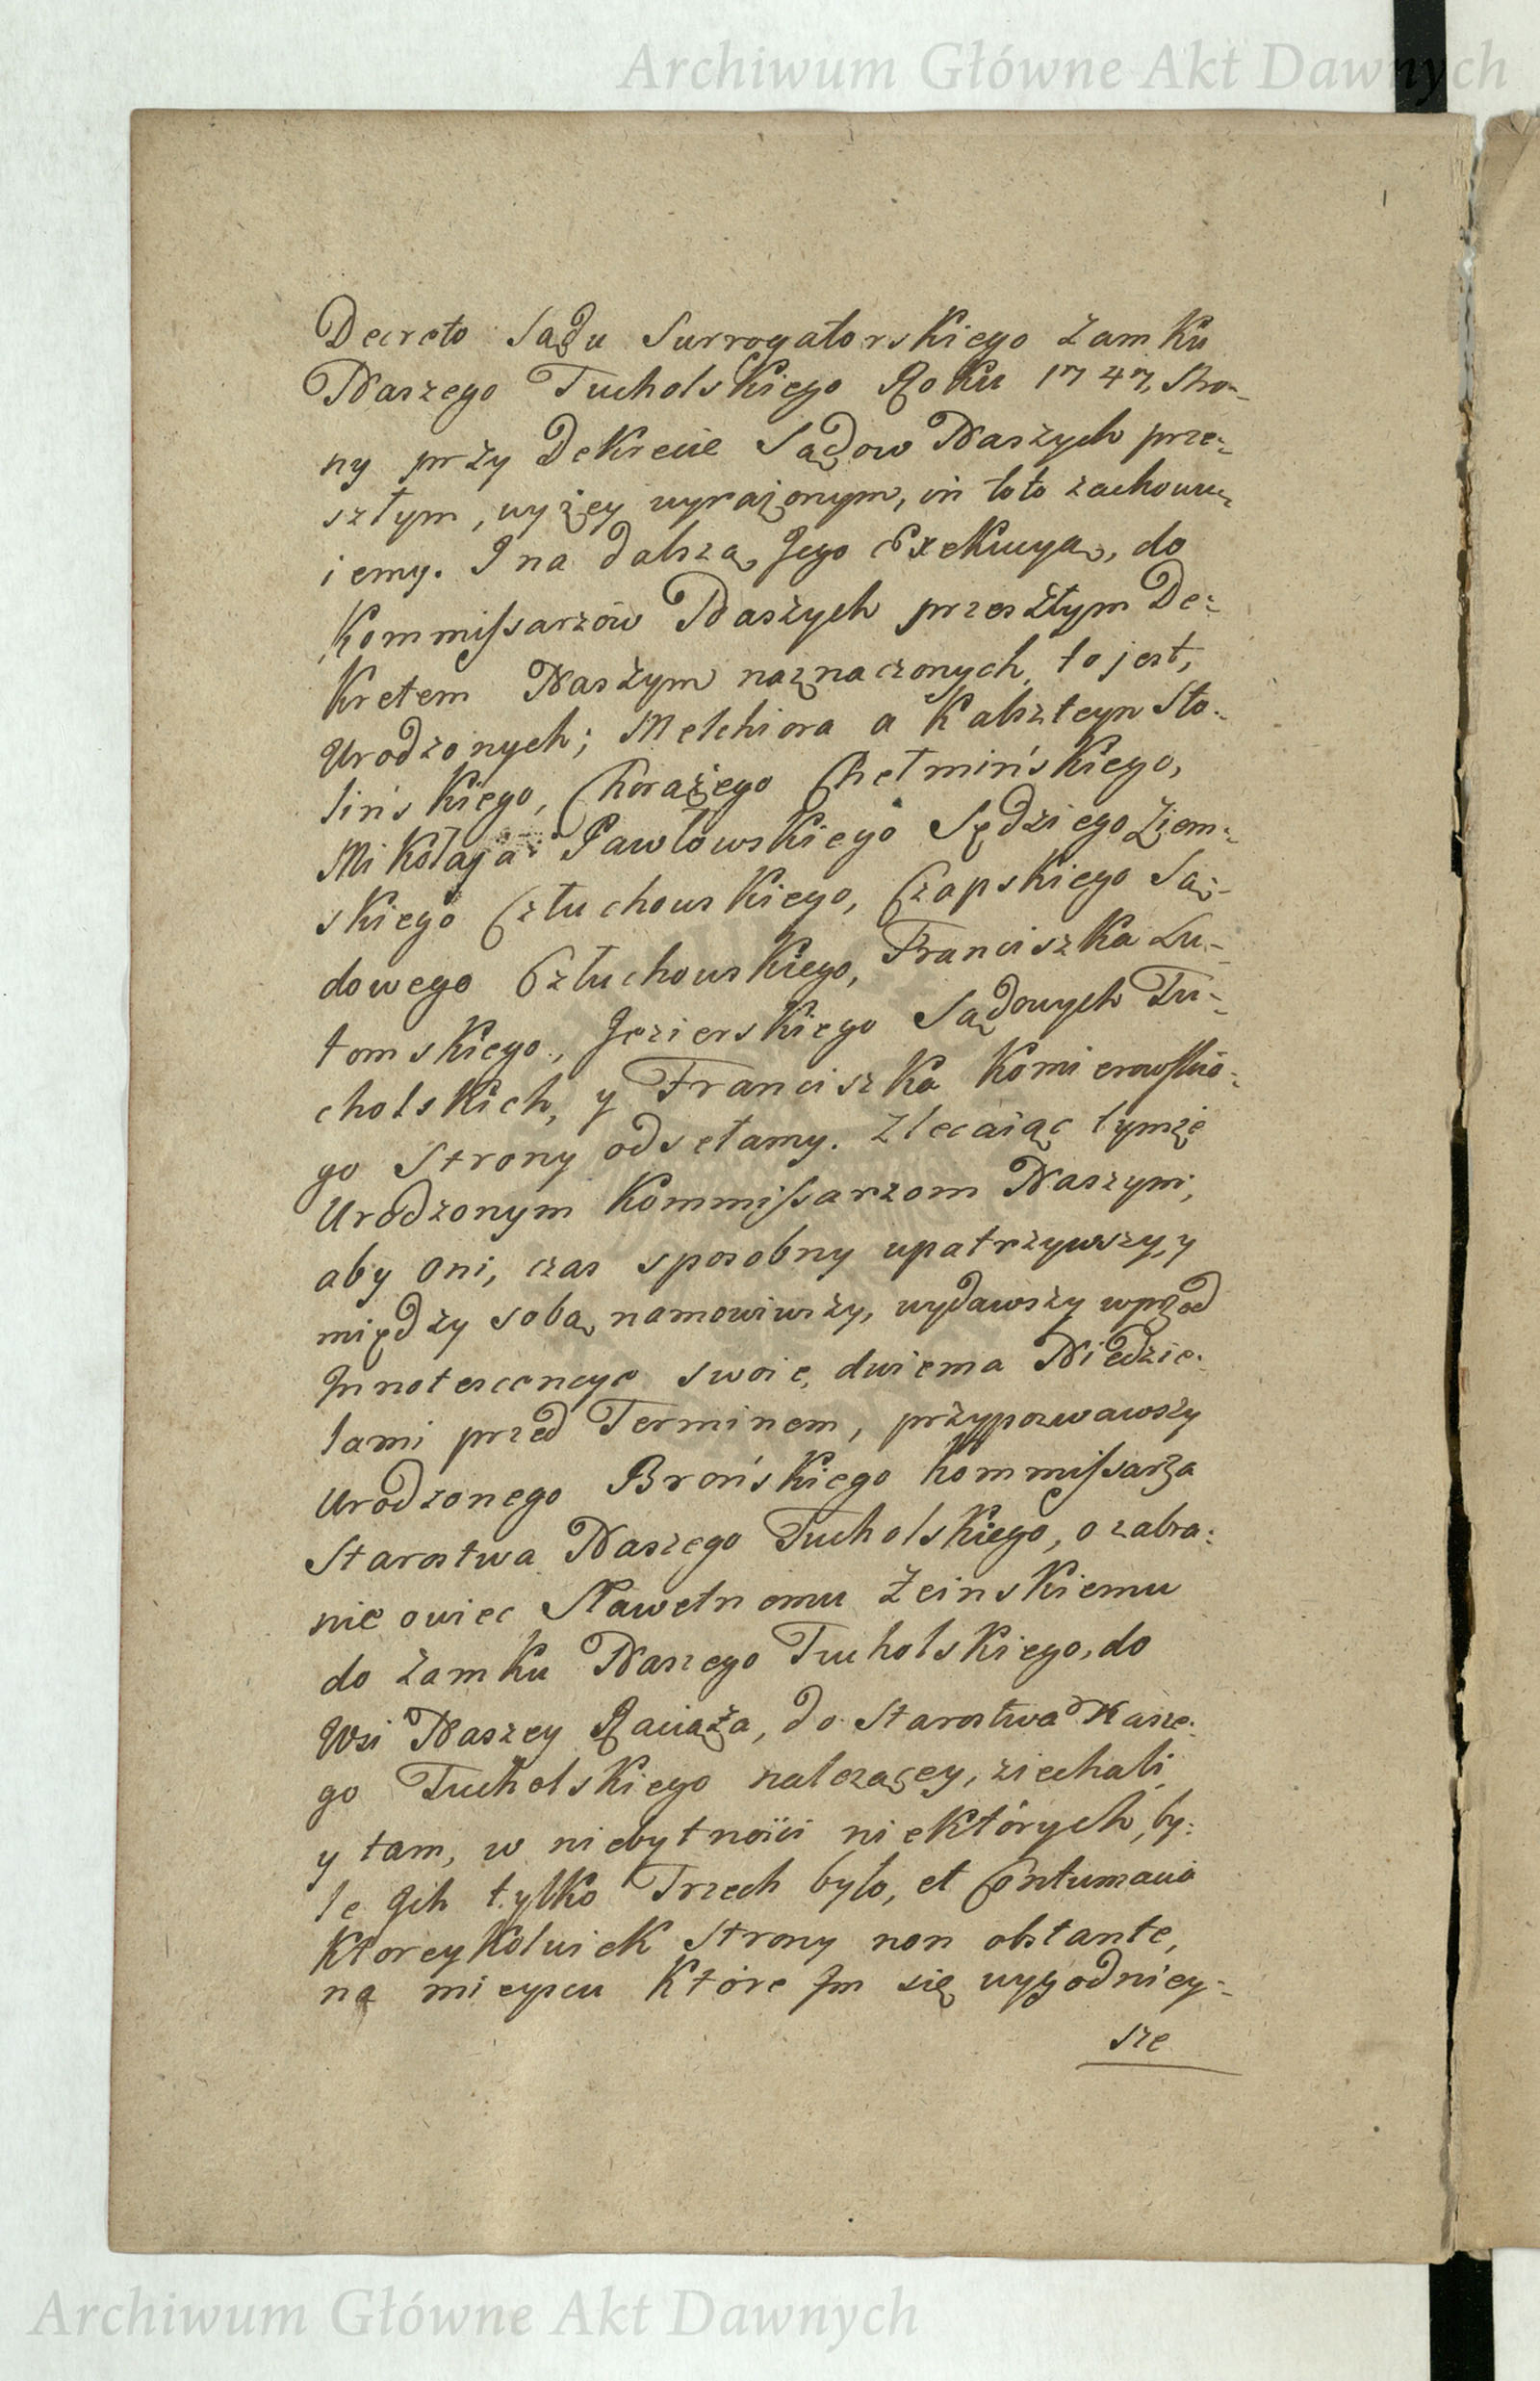 Archiwum Główne Akt Dawnych
1
Decreto Sądu Surrogatorskiego Zamku
Naszego Tucholskiego Roku 1747,
ny przy Dekrecie Sądow Naszych prze-
szłym, wyżey wyrażonym, in toto zachowu-
iemy. I na dalszą Jego Exekucyą, do
Kommissarzów Naszych przeszłym De-
kretem Naszym naznaczonych, to jest,
Urodzonych; Melchiora a Kalszteyn Sto-
lińskiego, Chorążego Chełmińskiego,
Mikołaja Pawłowskiego Sędziego Ziem-
skiego Człuchowskiego, Czapskiego Są-
dowego Człuchowskiego, Franciszka Lu-
tomskiego, Jezierskiego Sądowych Tu-
cholskich, y Franciszka Komierowskie-
go Strony odsełamy. Zlecaiąc tymże
Urodzonym Kommissarzom Naszym,
aby oni, czas sposobny upatrzywszy, y
między sobą namowiwszy, wydawszy wprzod
Innotescencye swoie, dwiema Niedzie-
lami przed Terminem, przypozwawszy
Urodzonego Brońskiego Kommissarza
Starostwa Naszego Tucholskiego, o zabra-
nie owiec Sławetnemu Zeinskiemu
do Zamku Naszego Tucholskiego, do
Wsi Naszey Raciąża, do Starostwa Nasze-
go Tucholskiego nalezącey, ziechali
y tam, w niebytności niektórych, by-
le Ich tylko Trzech było, et Contumacia
ktoreykolwiek Strony non obstante,
na mieyscu które Im się wygodniey-
sze
Archiwum Główne Akt Dawnych